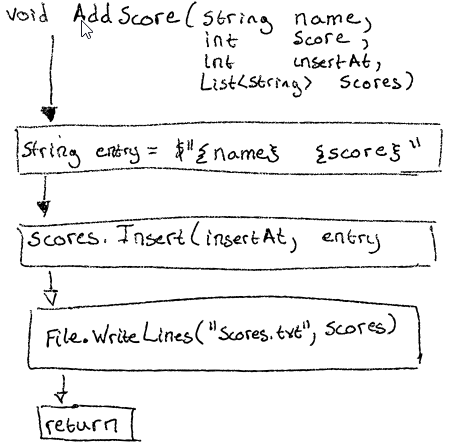 void AddScore(string name,
int score,
int insertAt,
List<string> scores)
string entry = $"{name} {score}"
scores.Insert(insertAt, entry
File.WriteLines("scores.txt", scores)
return